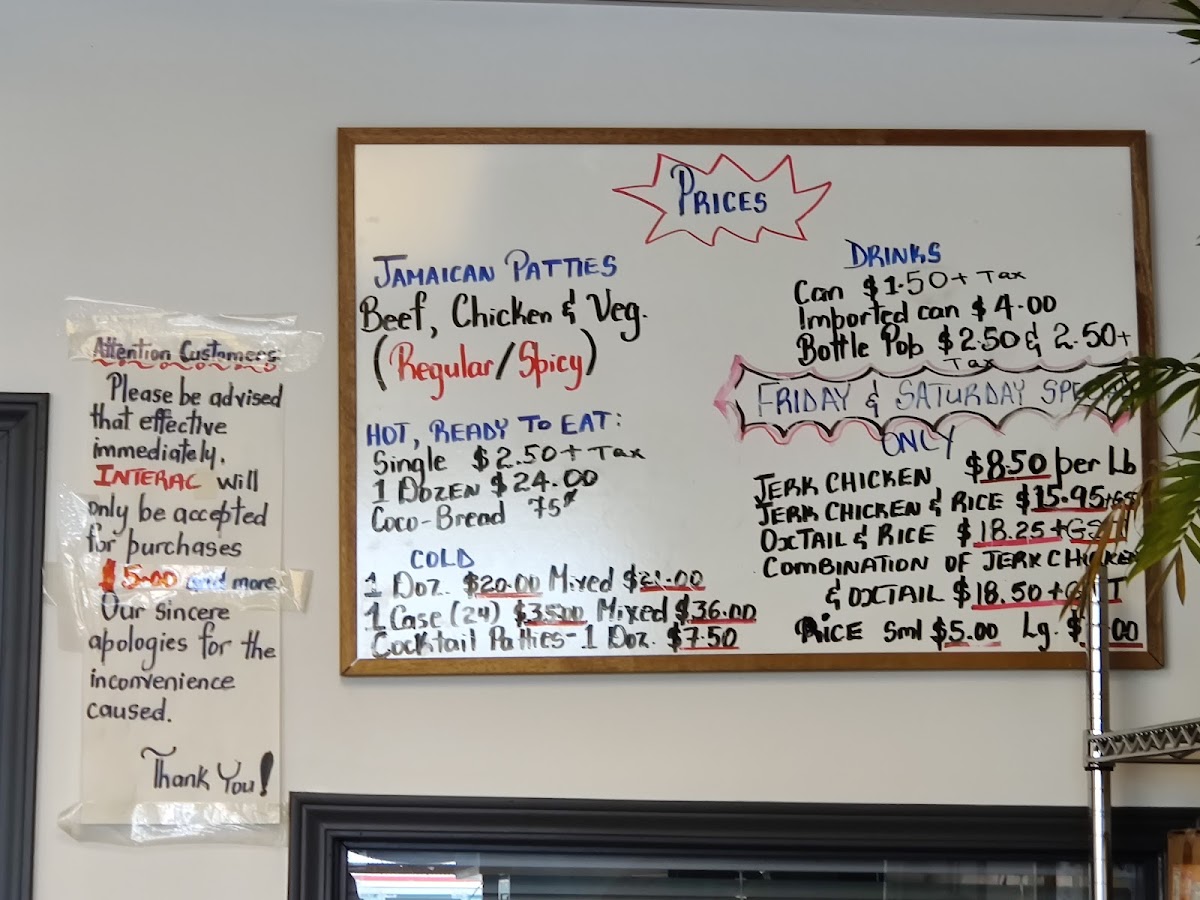 Attention Customers
Please be advised
that effective
immediately.
INTERAC will
only be accepted
for purchases
$5.00 and more
Our sincere
apologies for the
inconvenience
caused.
Thank You!
PRICES
JAMAICAN PATTIES
Beef, Chicken & Veg.
(Regular/Spicy)
HOT, READY TO EAT:
Single $2.50+Tax
1 DOZEN $24.00
Coco-Bread 75¢
COLD
1 Doz. $20.00 Mixed $21.00
1 Case (24) $35.00 Mixed $36.00
Cocktail Patties-1 Doz. $7.50
DRINKS
Can $1.50+Tax
Imported can $4.00
Bottle Pop $2.50 & 2.50+
Tax
FRIDAY & SATURDAY
ONLY
JERK CHICKEN $8.50 per Lb
JERK CHICKEN & RICE $15.95
OXTAIL & RICE $18.25
COMBINATION OF JERK CHICKEN
& OXTAIL $18.50
RICE Sml $5.00 Lg.